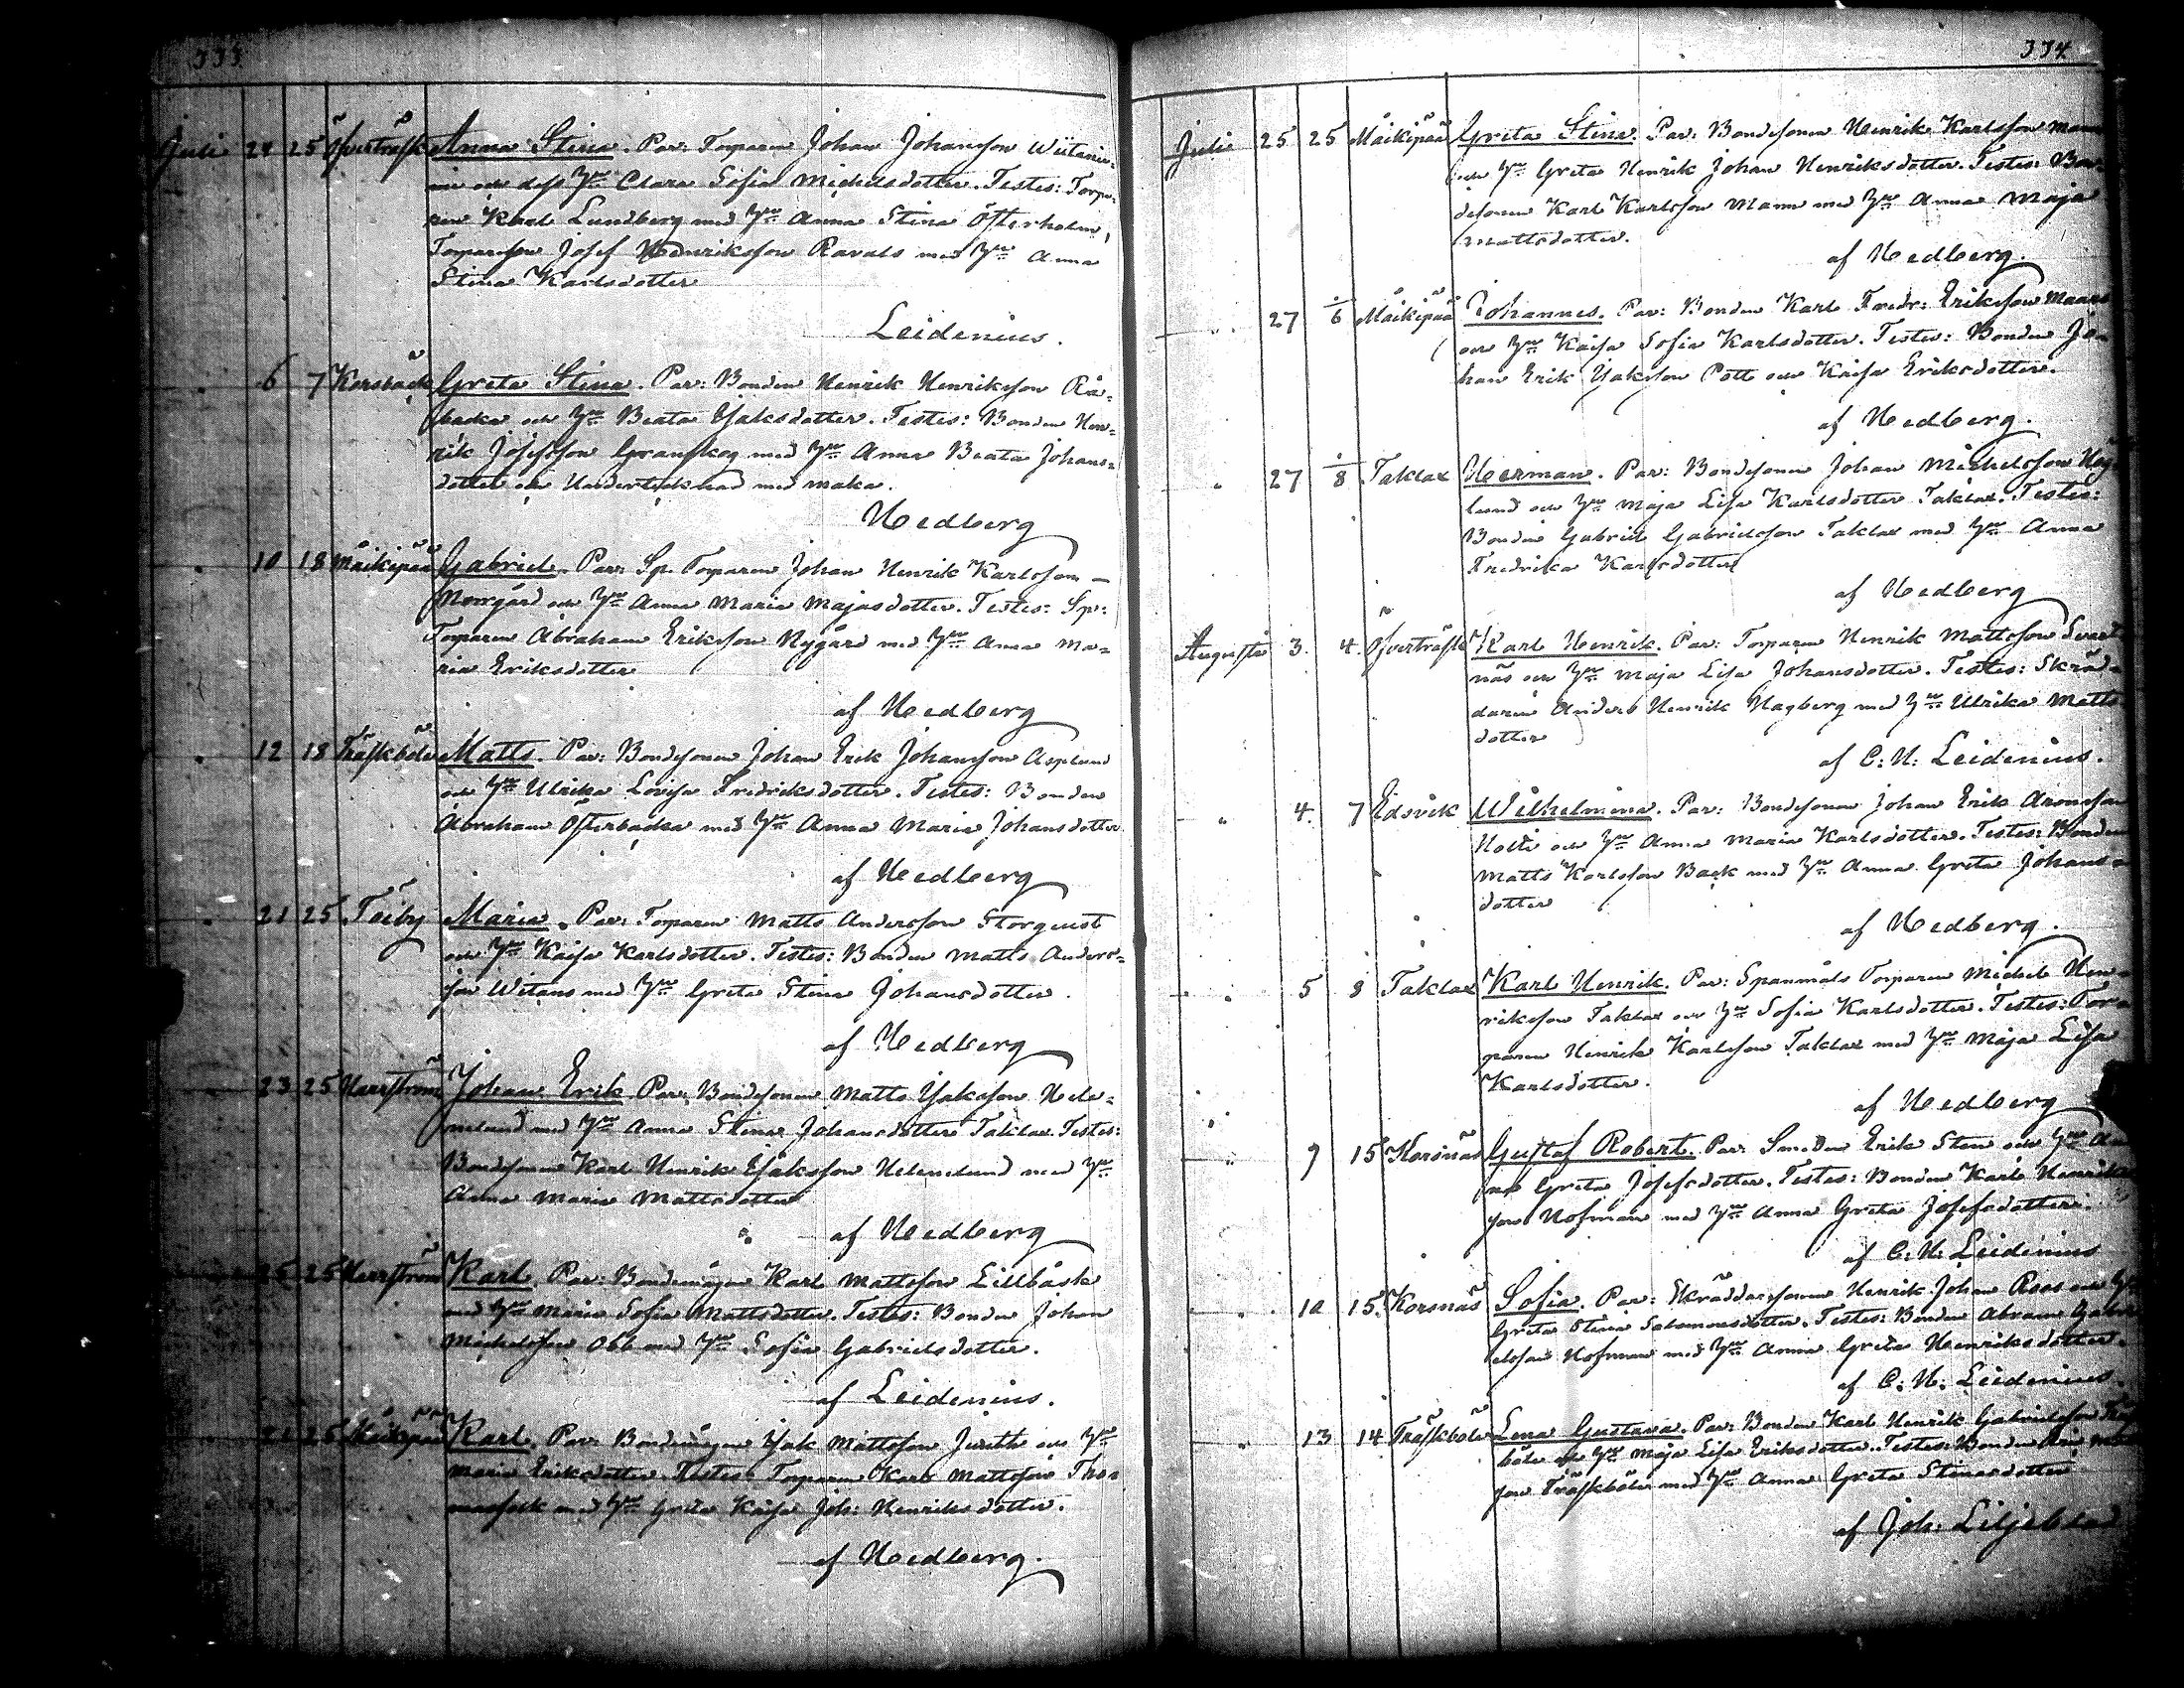 333
Juli 24 25 Öfverträsk Anna Stina. Par: Torparen Johan Johansson Wiitanie-
mi och dess Hu Clara Sofia Michelsdotter. Testes: Torpa-
ren Karl Lundberg med Hu Anna Stina Österholm,
Torparson Josef Henriksson Ravals med Hu Anna
Stina Karlsdotter
Leidenius.
6 7 Korsbäck Greta Stina. Par: Bonden Henrik Henriksson Rå-
backa och Hu Beata Isaksdotter. Testes: Bonden Hen-
rik Josefsson Granskog med Hu Anna Beata Johans-
dotter och Undertecknad med maka.
Hedberg
10 18 Måikipää Gabriel. Par: Sp. Torparen Johan Henrik Karlsson
Norrgård och Hu Anna Maria Majasdotter. Testes: Sp:
Torparen Abraham Eriksson Nygård med Hu Anna Ma-
ria Eriksdotter
af Hedberg
12 18 Träskböle Matts. Par: Bondesonen Johan Erik Johansson Asplund
och Hu Ulrika Lovisa Fredriksdotter. Testes: Bonden
Abraham Österbacka med Hu Anna Maria Johansdotter
af Hedberg
21 25 Taiby Maria. Par: Torparen Matts Andersson Storquist
och Hu Kaisa Karlsdotter. Testes: Bonden Matts Anders-
son Witans med Hu Greta Stina Johansdotter.
af Hedberg
23 25 Harrström Johan Erik Par: Bondesonen Matts Isaksson Hele-
nelund med Hu Anna Stina Johansdotter Taklax. Testes:
Bondesonen Karl Henrik Isaksson Helenelund med Hu
Anna Maria Mattsdotter
af Hedberg
25 25 Harrström Karl. Par: Bondemågen Karl Mattsson Lillbåsk
med Hu Maria Sofia Mattsdotter. Testes: Bonden Johan
Michelsson Obb med Hu Sofia Gabrielsdotter.
af Leidenius.
25 Måikipää Karl. Par: Bondemågen Isak Mattsson Jureth och Hu
Maria Eriksdotter. Testes: Torparen Karl Mattsson Tho-
masfolk med Hu Greta Kaisa Joh: Henriksdotter.
af Hedberg.
334
Juli 25 25 Måikipää Greta Stina. Par: Bondesonen Henrik Karlsson Mann
och Hu Greta Henrik Johan Henriksdotter. Testes: Bon-
desonen Karl Karlsson Mann med Hu Anna Maja
Mattsdotter.
af Hedberg.
27 1/6 Måikipää Johannes. Par: Bonden Karl Fredr: Eriksson Maars
och Hu Kaisa Sofia Karlsdotter. Testes: Bonden Jo-
han Erik Isaksson Pott och Kaisa Eriksdotter.
af Hedberg.
27 1/8 Taklax Herman. Par: Bondesonen Johan Michelsson Hög
lund och Hu Maja Lisa Karlsdotter Taklax. Testes:
Bonden Gabriel Gabrielsson Taklax med Hu Anna
Fredrika Karlsdotter
af Hedberg
Augusti 3. 4. Öfverträsk Karl Henrik. Par: Torparen Henrik Mattsson Svart
näs och Hu Maja Lisa Johansdotter. Testes: Skräd-
daren Anders Henrik Hagberg med Hu Ulrika Matts
dotter
af C. H. Leidenius.
4. 7 Edsvik Wilhelmina. Par: Bondesonen Johan Erik Aronsson
Holti och Hu Anna Maria Karlsdotter. Testes: Bonden
Matts Karlsson Back med Hu Anna Greta Johans-
dotter
af Hedberg.
5 8 Taklax Karl Henrik. Par: Spanmåls Torparen Michel Hen-
riksson Taklax och Hu Sofia Karlsdotter. Testes: Tor-
paren Henrik Karlsson Taklax med Hu Maja Lisa
Karlsdotter.
af Hedberg
9 15 Korsnäs Gustaf Robert. Par: Smeden Erik Sten och Hu An
na Greta Josefsdotter. Testes: Bonden Karl Henriks
son Hofman med Hu Anna Greta Josefsdotter.
af C. H. Leidenius
10 15. Korsnäs Sofia. Par: Skräddarsonen Henrik Johan Roos och Hu
Greta Stina Salomonsdotter. Testes: Bonden Abram Gabri
elsson Hofman med Hu Anna Greta Henriksdotter.
af C. H. Leidenius.
13 14 Träskböle Lena Gustava. Par: Bonden Karl Henrik Gabrielsson Träsk
böle och Hu Maja Lisa Eriksdotter. Testes: Bonden
son Träskböle med Hu Anna Greta Stinasdotter
af Joh. Liljeblad